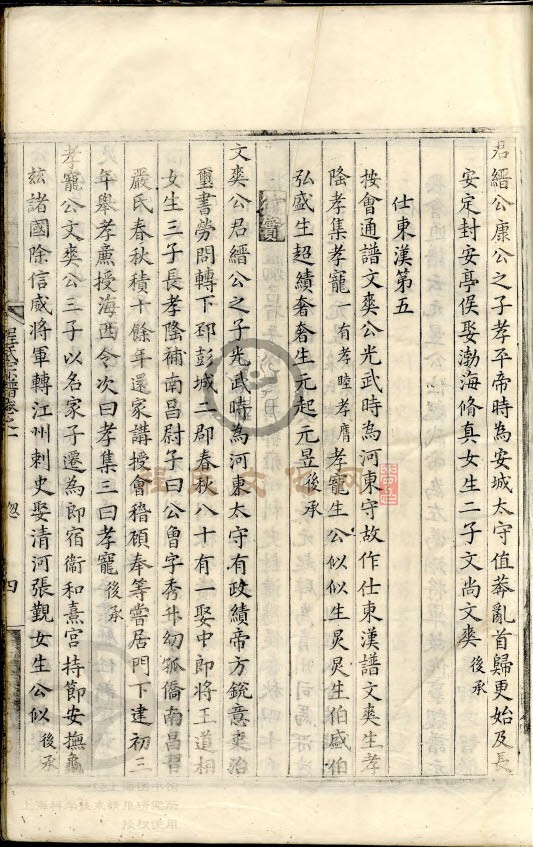 君縉公康公之子孝平帝時為安城太守值莽亂首歸更始及長
安定封安亭侯娶渤海脩真女生二子文尚文奭後承
仕東漢第五
按會通譜文奭公光武時為河東守故作仕東漢譜文奭生孝
隆孝集孝寵一有孝睦孝膺孝寵生公似似生炅炅生伯盛伯
弘盛生超績奢奢生元起元昱後承
實
文奭公君縉公之子光武時為河東太守有政績帝方銳意吏治
璽書勞問轉下邳彭城二郡春秋八十有一娶中郎將王道相
女生三子長孝隆補南昌尉子曰公魯字秀升幼孤僑南昌習
嚴氏春秋積十餘年還家講授會稽碩奉等嘗居門下建初三
年舉孝廉授海西令次曰孝集三曰孝寵後承
孝寵公文奭公三子以名家子遷為郎宿衛和熹宮持節安撫龜
玆諸國除信威將軍轉江州刺史娶清河張覲女生公似後承
程氏宗譜卷之一
四